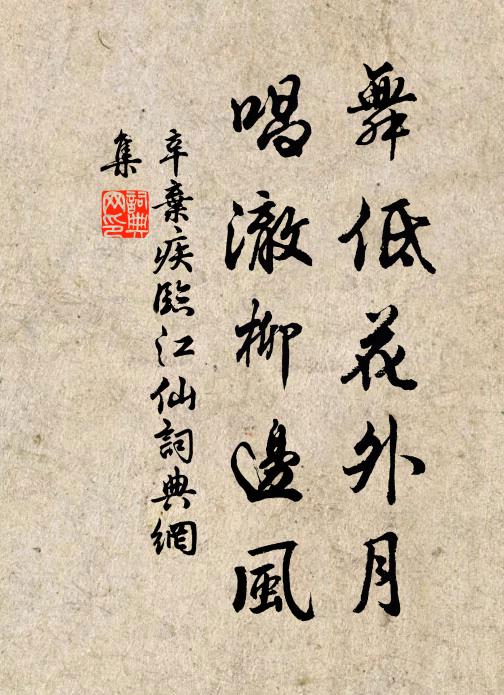 舞低花外月
唱澈柳邊風
辛棄疾臨江仙詞典網
集
詞典
网印